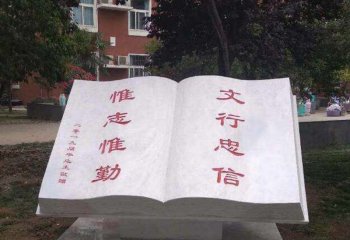 文行忠信
惟志惟勤